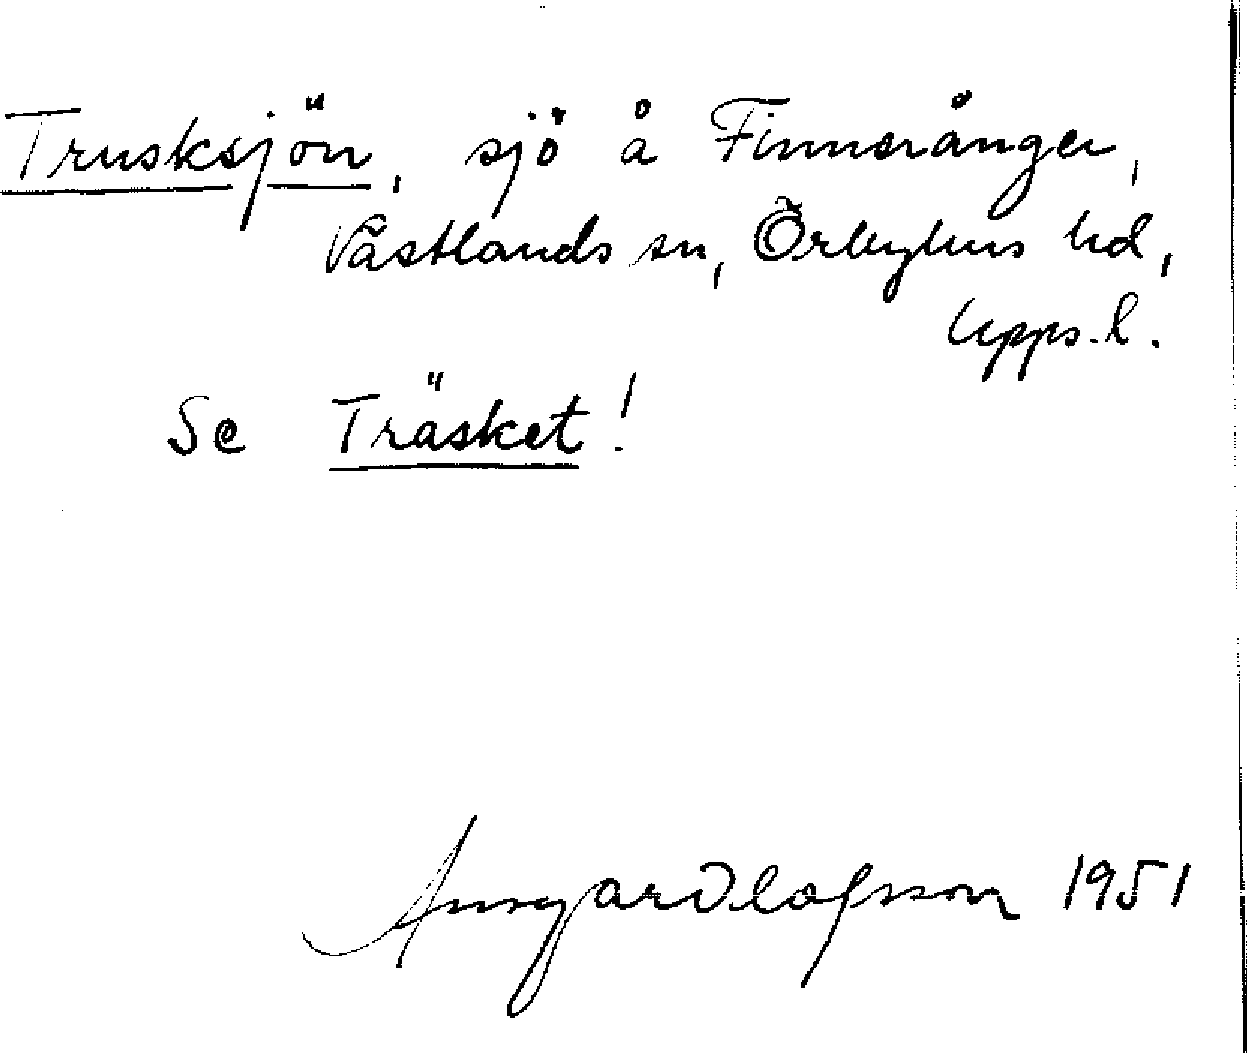 Trusksjön, sjö å Finnerånger,
Västlands sn, Örbyhus hd,
Upps. l.
Se Träsket!
Ansgar Olofsson 1951